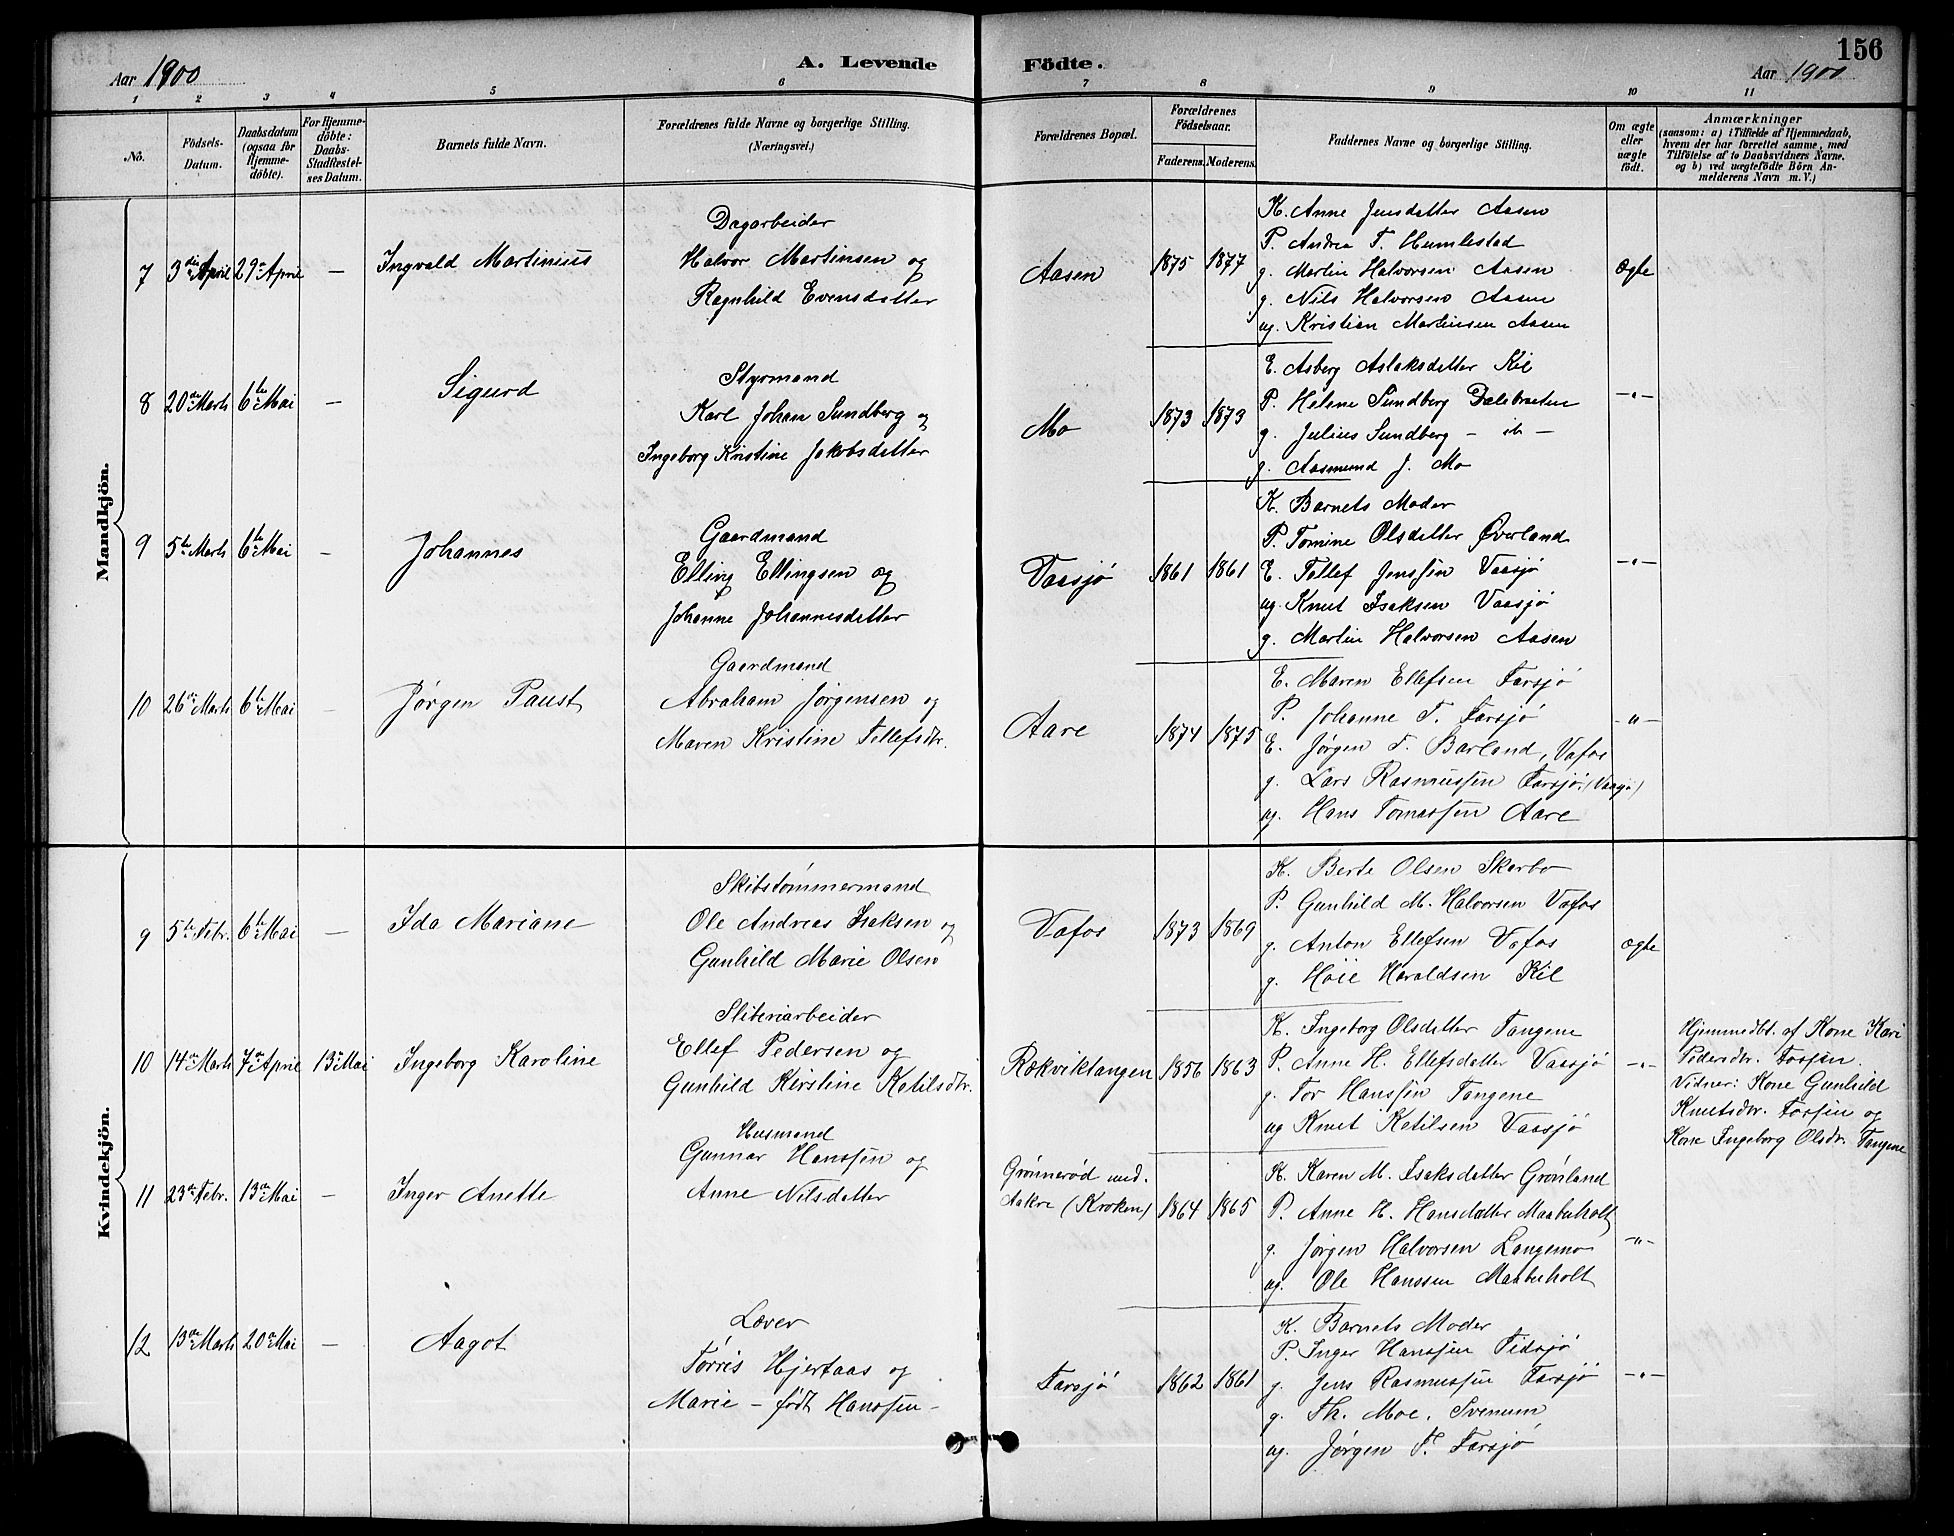 156
Aar 1900
A. Levende
Födte.
Aar 1900
1 2 3 4 5 6 7 8 9 10 11
No.
Födsels-
Datum.
Daabsdatum
(ogsaa for
Hjemme-
döbte).
For Hjemme-
döbte:
Daabs-
Stadfæstel-
ses Datum.
Barnets fulde Navn.
Forældrenes fulde Navne og borgerlige Stilling.
(Næringsvei.)
Forældrenes Bopæl.
Forældrenes
Födselsaar.
Faderens. Moderens.
Faddernes Navne og borgerlige Stilling.
Om ægte
eller
uægte
födt.
Anmærkninger
(saasom: a) i Tilfælde af Hjemmedaab,
hvem der har forrettet samme, med
Tilföielse af to Daabsvidners Navne,
og b) ved uægtefödte Börn An-
melderens Navn m. V.)
Mandkjön.
7 3die April 29de April — Ingvald Martinius
Dagarbeider
Halvor Martinsen og
Ragnhild Evensdatter
Aasen 1875 1877
K. Anne Jensdatter Aasen
P. Andrea T. Humlestad
g. Martin Halvorsen Aasen
g. Nils Halvorsen Aasen
ug. Kristian Martinsen Aasen
Ægte
8 20de Marts 6te Mai — Sigurd
Styrmand
Karl Johan Sundberg og
Ingeborg Kristine Jakobsdatter
Mo 1873 1873
E. Asberg Aslaksdatter Kil
P. Helene Sundberg Dalebraaten
g. Julius Sundberg — ib —
g. Aasmund J. Mo
—"—
9 5te Marts 6te Mai — Johannes
Gaardmand
Elling Ellingsen og
Johanne Johannesdatter
Vaasjø 1861 1861
K. Barnets Moder
P. Tomine Olsdatter Øverland
E. Tellef Jenssen Vaasjø
ug. Knut Isaksen Vaasjø
g. Martin Halvorsen Aasen
—"—
10 26de Marts 6te Mai — Jørgen Faust
Gaardmand
Abraham Jørgensen og
Maren Kristine Tellefsdtr.
Aare 1874 1875
E. Maren Ellefsen Farsjø
P. Johanne T. Farsjø
E. Jørgen T. Barland, Vafos
g. Lars Rasmussen Farsjø (Vaasjø)
ug. Hans Tomassen Aare
—"—
Kvindekjön.
9 5te Febr. 6te Mai — Ida Mariane
Skibstömmermand
Ole Andreas Isaksen og
Gunhild Marie Olsen
Vafos 1873 1869
K. Berte Olsen Skarbo
P. Gunhild M. Halvorsen Vafos
g. Anton Ellefsen Vafos
g. Høie Haraldsen Kil
Ægte
10 14de Marts 7de April 13de Mai Ingeborg Karoline
Sliberiarbeider
Ellef Pedersen og
Gunhild Kirstine Ketilsdtr.
Rækviktangen 1856 1863
K. Ingeborg Olsdatter Tangene
P. Anne H. Ellefsdatter Vaasjø
g. Tor Hanssen Tangene
ug Knut Ketilsen Vaasjø
—"—
Hjemmedbt. af Kone Kari
Pedersdtr. Fossen.
Vidner: Kone Gunhild
Knutsdtr. Fossen og
Kone Ingeborg Olsdtr. Tangene
11 23de Febr. 13de Mai — Inger Anette
Husmand
Gunnar Hanssen og
Anne Nilsdatter
Grønnerød und.
Aakre (Kroken) 1864 1865
K. Karen M. Isaksdatter Grønland
P. Anne H. Hansdatter Maaberholt
g. Jørgen Halvorsen Langemo
ug. Ole Hanssen Maaberholt
—"—
12 13de Marts 20de Mai — Aagot
Lærer
Tørris Hjertaas og
Marie — født Hanssen —
Farsjø 1862 1861
K. Barnets Moder
P. Inger Hanssen Tidsjø
g. Jens Rasmussen Farsjø
g. Th. Moe, Svenum
ug. Jørgen T. Farsjø
—"—